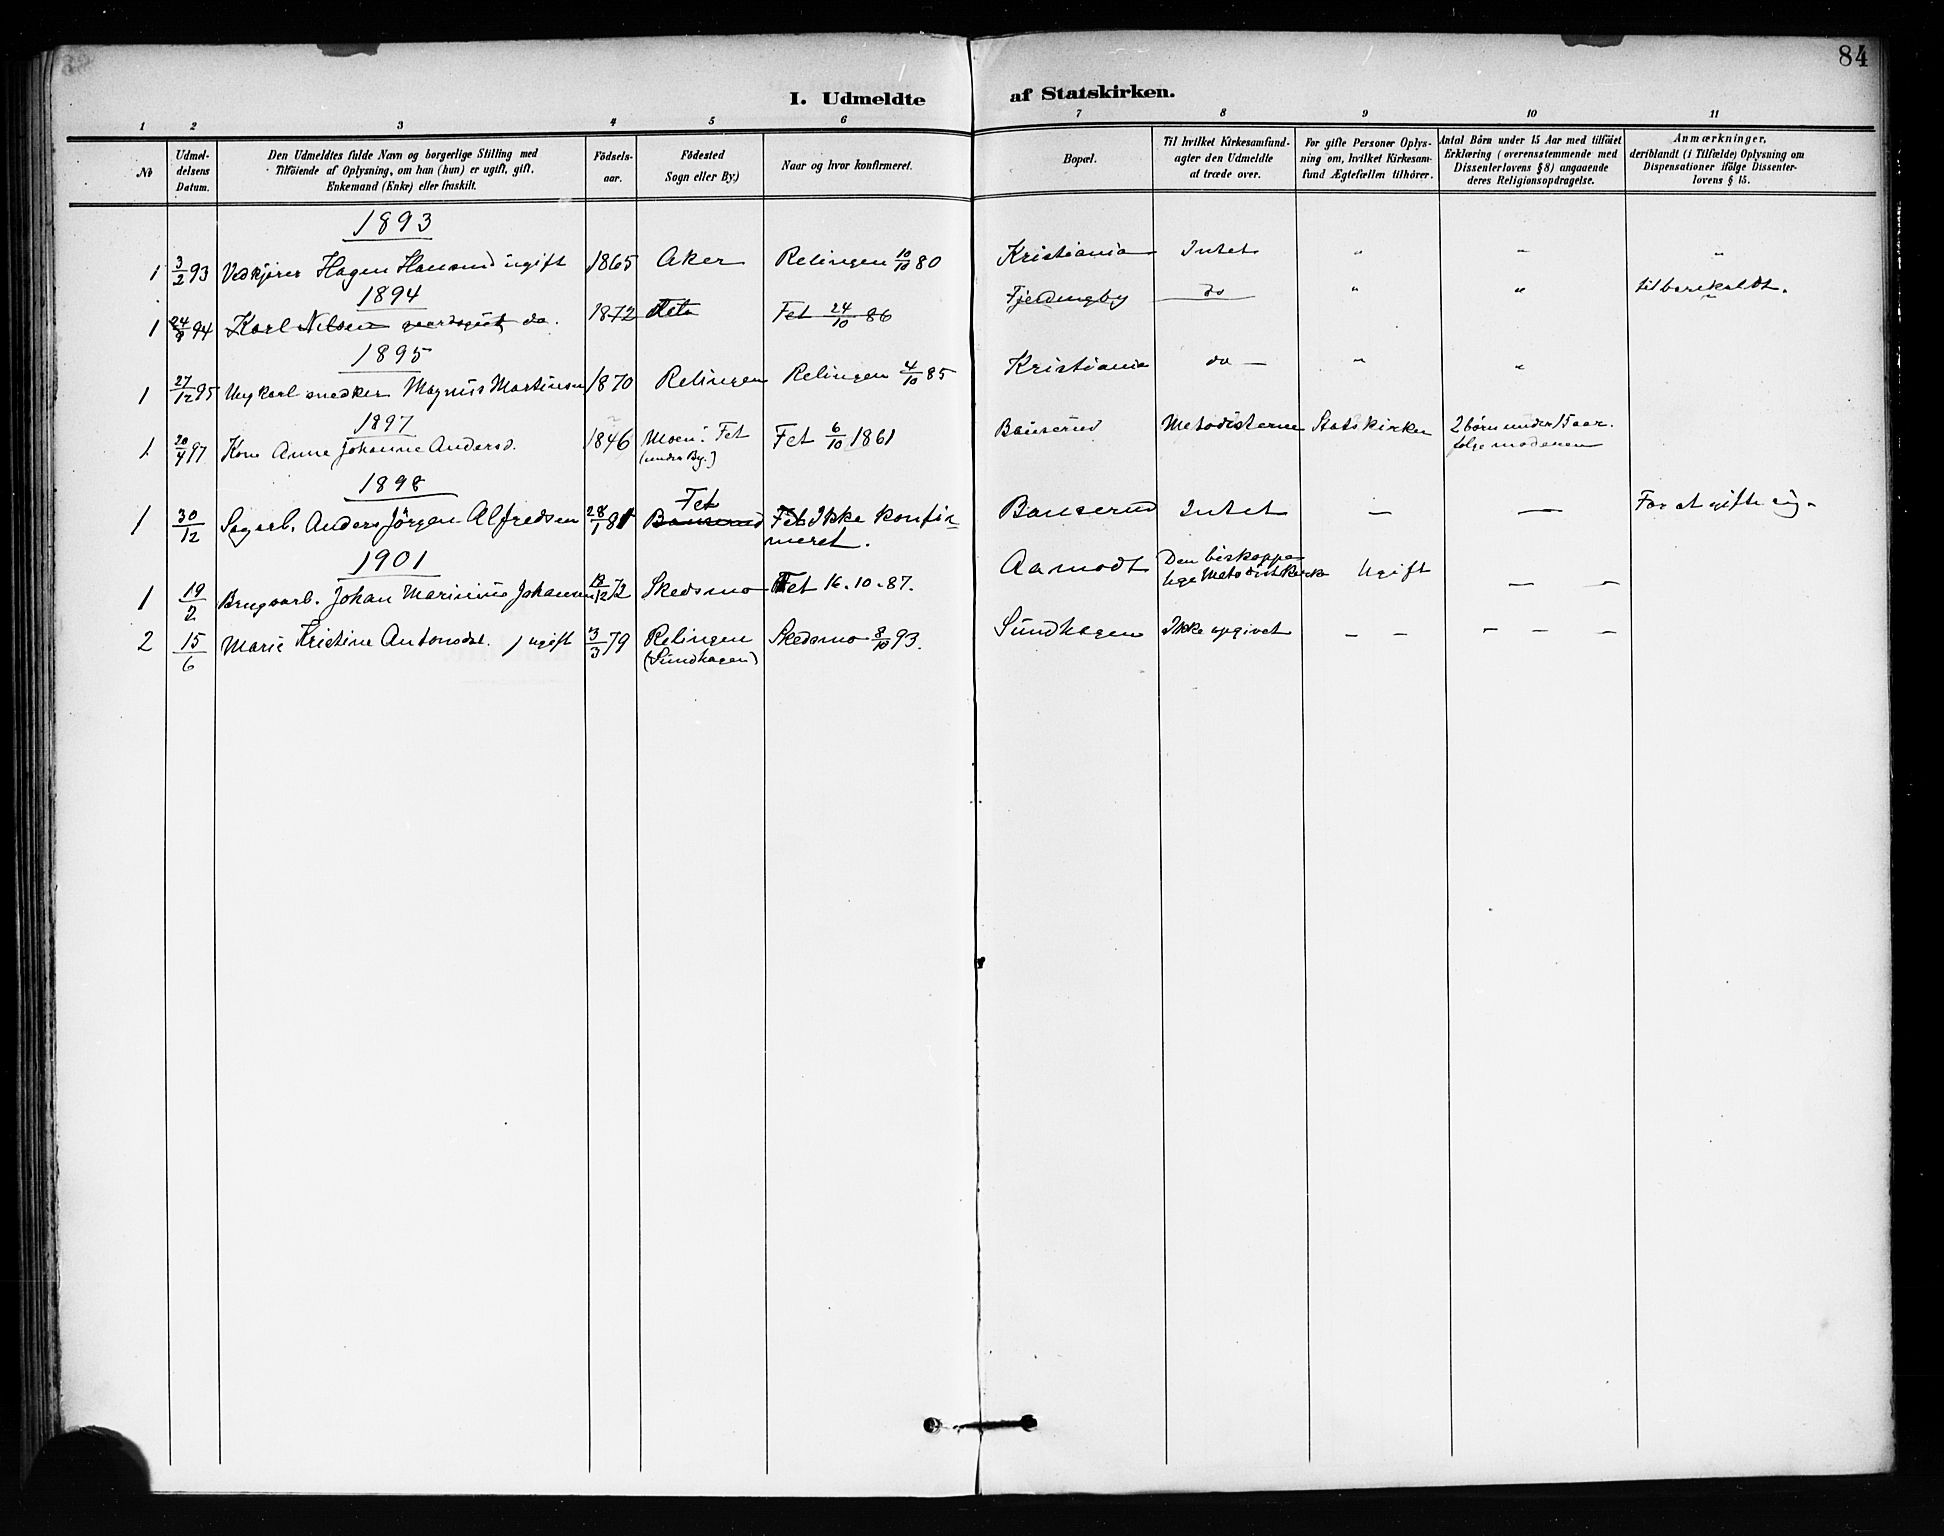 84
I. Udmeldte af Statskirken.
1 2 3 4 5 6 7 8 9 10 11
No
Udmel-
delsens
Datum.
Den Udmeldtes fulde Navn og borgerlige Stilling med
Tilföiende af Oplysning, om han (hun) er ugift, gift,
Enkemand (Enke) eller fraskilt.
Födsels-
aar.
Födested
Sogn eller By.)
Naar og hvor konfirmeret.
Bopæl.
Til hvilket Kirkesamfund-
agter den Udmeldte
at træde over.
For gifte Personer Oplys-
ning om, hvilket Kirkesam-
fund Ægtefællen tilhörer.
Antal Börn under 15 Aar med tilföiet
Erklæring (overensstemmende med
Dissenterlovens § 8) angaaende
deres Religionsopdragelse.
Anmærkninger,
deriblandt (i Tilfælde) Oplysning om
Dispensationer ifölge Dissenter-
lovens § 15.
1893
1 3/2 93 Hagen Hansen ugift 1865 Aker Relingen 10/10 80 Kristiania Intet " – "
1894
1 24/ 94 Karl Nilsen do. 1872 Fet 24/10 86 Fjeldingby do " " tilbarekaldt.
1895
1 27/12 95 Ungkarl snedker Magnus Martinsen 1870 Relingen Relingen 4/10 85 Kristiania do – " "
1897
1 20/4 97 Kone Anne Johanne Andersd. 1846 Moen i Fet Fet 6/10 1861 Bauserud Metodisterne Statskirken 2 børn under 15 aar.
(under By.) følge moderen
1898
1 30/12 Sagarb. Anders Jörgen Alfredsen 28/1 81 Fet Bauserud Fet Ikke konfir-
meret. Bauserud Intet – – For at gifte sig.
1901
1 19/2 Brugsarb. Johan Marinius Johansen /12 72 Skedsmo Fet 16.10.87. Aamodt Den biskoppe
lige Metodistkirke Ugift – –
2 15/6 Marie Kristine Antonsdt. ugift 3/3 79 Relingen Skedsmo 8/10 93. Sundhagen Ikke opgivet – – – – –
(Sundhagen)